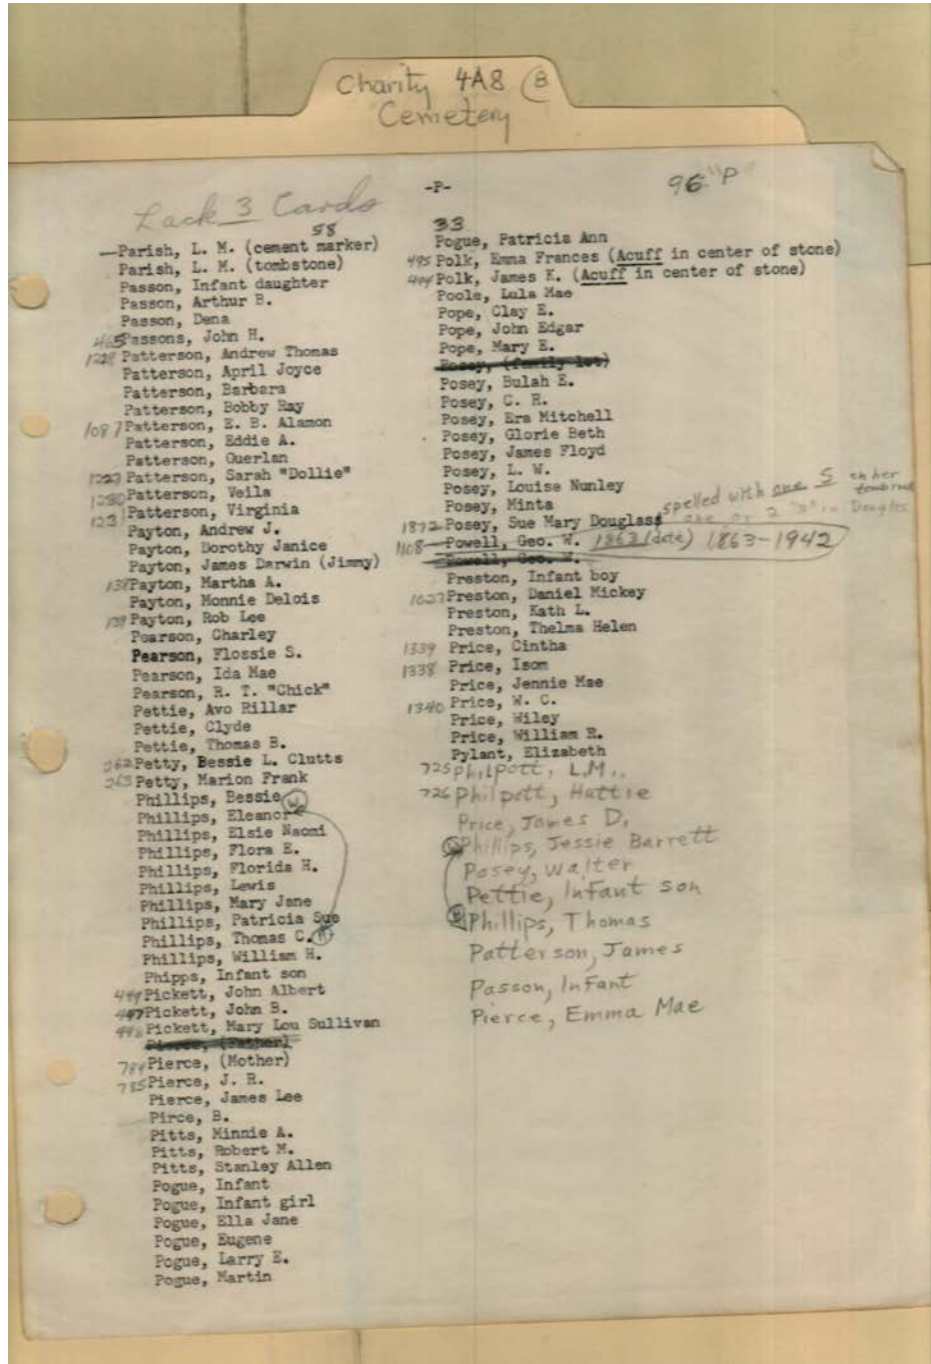 Charity 4A8 B
Cemetery
-P-
96 "P"
Lack 3 Cards
58
—Parish, L. M. (cement marker)
Parish, L. M. (tombstone)
Passon, Infant daughter
Passon, Arthur B.
Passon, Dena
465 Passons, John H.
Patterson, Andrew Thomas
Patterson, April Joyce
Patterson, Barbara
Patterson, Bobby Ray
1087 Patterson, E. B. Alamon
Patterson, Eddie A.
Patterson, Querlan
Patterson, Sarah "Dollie"
1230 Patterson, Veila
1231 Patterson, Virginia
Payton, Andrew J.
Payton, Dorothy Janice
Payton, James Darwin (Jimmy)
138 Payton, Martha A.
Payton, Monnie Delois
139 Payton, Rob Lee
Pearson, Charley
Pearson, Flossie S.
Pearson, Ida Mae
Pearson, R. T. "Chick"
Pettie, Avo Rillar
Pettie, Clyde
Pettie, Thomas B.
262 Petty, Bessie L. Clutts
263 Petty, Marion Frank
Phillips, Bessie W
Phillips, Eleanor
Phillips, Elsie Naomi
Phillips, Flora E.
Phillips, Florida H.
Phillips, Lewis
Phillips, Mary Jane
Phillips, Patricia Sue
Phillips, Thomas C. H
Phillips, William H.
Phipps, Infant son
449 Pickett, John Albert
447 Pickett, John B.
448 Pickett, Mary Lou Sullivan
Pierce, (Father)
784 Pierce, (Mother)
785 Pierce, J. R.
Pierce, James Lee
Pirce, B.
Pitts, Minnie A.
Pitts, Robert M.
Pitts, Stanley Allen
Pogue, Infant
Pogue, Infant girl
Pogue, Ella Jane
Pogue, Eugene
Pogue, Larry E.
Pogue, Martin
33
Pogue, Patricia Ann
495 Polk, Emma Frances (Acuff in center of stone)
494 Polk, James K. (Acuff in center of stone)
Poole, Lula Mae
Pope, Clay E.
Pope, John Edgar
Pope, Mary E.
Posey, (family lot)
Posey, Bulah E.
Posey, C. R.
Posey, Era Mitchell
Posey, Glorie Beth
Posey, James Floyd
Posey, L. W.
Posey, Louise Nunley
Posey, Minta
1872 Posey, Sue Mary Douglass spelled with one S on her
one or 2 "s" in Douglas
1108 Powell, Geo. W. 1863 (date) 1863-1942
Powell, Geo. W.
Preston, Infant boy
1027 Preston, Daniel Mickey
Preston, Kath L.
Preston, Thelma Helen
1339 Price, Cintha
1338 Price, Isom
Price, Jennie Mae
1340 Price, W. C.
Price, Wiley
Price, William R.
Pylant, Elizabeth
725 Philpott, L.M.
726 Philpott, Hattie
Price, James D.
Phillips, Jessie Barrett
Posey, Walter
Pettie, Infant son
Phillips, Thomas
Patterson, James
Passon, Infant
Pierce, Emma Mae